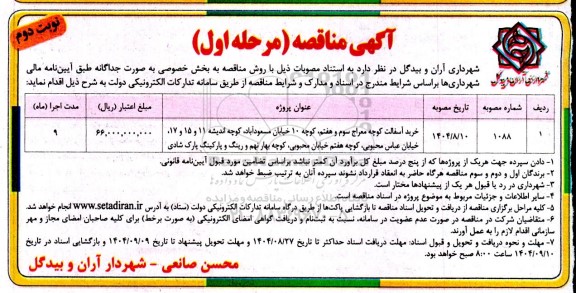 نوبت دوم
آگهی مناقصه (مرحله اول)
شهرداری آران و بیدگل در نظر دارد به استناد مصوبات ذیل با روش مناقصه به بخش خصوصی به صورت جداگانه طبق آیین‌نامه مالی
شهرداری‌ها براساس شرایط مندرج در اسناد و مدارک و شرایط مناقصه از طریق سامانه تدارکات الکترونیکی دولت به شرح ذیل اقدام نماید:
ردیف شماره مصوبه تاریخ مصوبه عنوان پروژه مبلغ اعتبار (ریال) مدت اجرا (ماه)
۱ ۱۰۸۸ ۱۴۰۴/۸/۱۰ خرید آسفالت کوچه معراج سوم و هفتم، کوچه ۱۰ خیابان مسعودآباد، کوچه اندیشه ۱۱ و ۱۵ و ۱۷، ۶۶,۰۰۰,۰۰۰,۰۰۰ ۹
خیابان عباس محبوبی، کوچه هفتم خیابان محبوبی، کوچه بهار نهم و رینگ و پارکینگ پارک شادی
۱- دادن سپرده جهت هریک از پروژه‌ها که از پنج درصد مبلغ کل برآورد آن کمتر نباشد براساس تضامین مورد قبول آیین‌نامه قانونی.
۲- برندگان اول و دوم و سوم مناقصه هرگاه حاضر به انعقاد قرارداد نشوند سپرده آنان به ترتیب ضبط خواهد شد.
۳- شهرداری در رد یا قبول هر یک از پیشنهادها مختار است.
۴- سایر اطلاعات و جزئیات مربوط به موضوع پروژه در اسناد مناقصه است.
۵- کلیه مراحل برگزاری مناقصه از دریافت و تحویل اسناد مناقصه تا بازگشایی پاکت‌ها از طریق درگاه سامانه تدارکات الکترونیکی دولت (ستاد) به آدرس www.setadiran.ir انجام خواهد شد.
۶- متقاضیان شرکت در مناقصه در صورت عدم عضویت در سامانه، نسبت به ثبت‌نام و دریافت گواهی امضای الکترونیکی (به صورت برخط) برای کلیه صاحبان امضای مجاز و مهر
سازمانی اقدام لازم را به عمل آورند.
۷- مهلت و نحوه دریافت و تحویل و قبول اسناد: مهلت دریافت اسناد حداکثر تا تاریخ ۱۴۰۴/۰۸/۲۷ و مهلت تحویل پیشنهاد تا تاریخ ۱۴۰۴/۰۹/۰۹ و بازگشایی اسناد در تاریخ
۱۴۰۴/۰۹/۱۰ ساعت ۸:۰۰ صبح خواهد بود.
محسن صانعی - شهردار آران و بیدگل